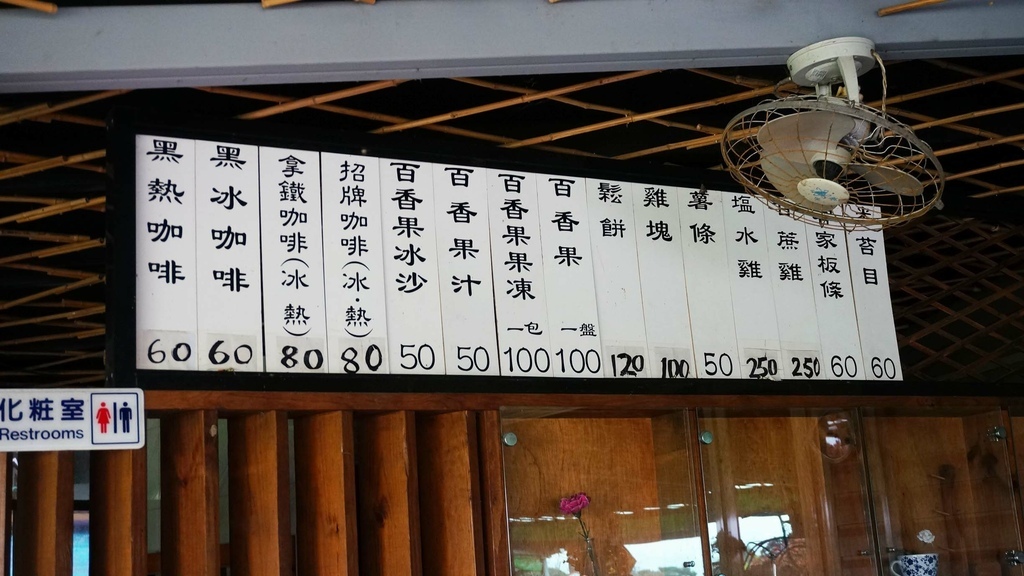 黑熱咖啡 60
黑冰咖啡 60
拿鐵咖啡(冰 熱) 80
招牌咖啡(冰·熱) 80
百香果冰沙 50
百香果汁 50
百香果果凍 一包 100
百香果 一盤 100
鬆餅 120
雞塊 100
薯條 50
塩水雞 250
蔗雞 250
家板條 60
米苔目 60
化粧室
Restrooms